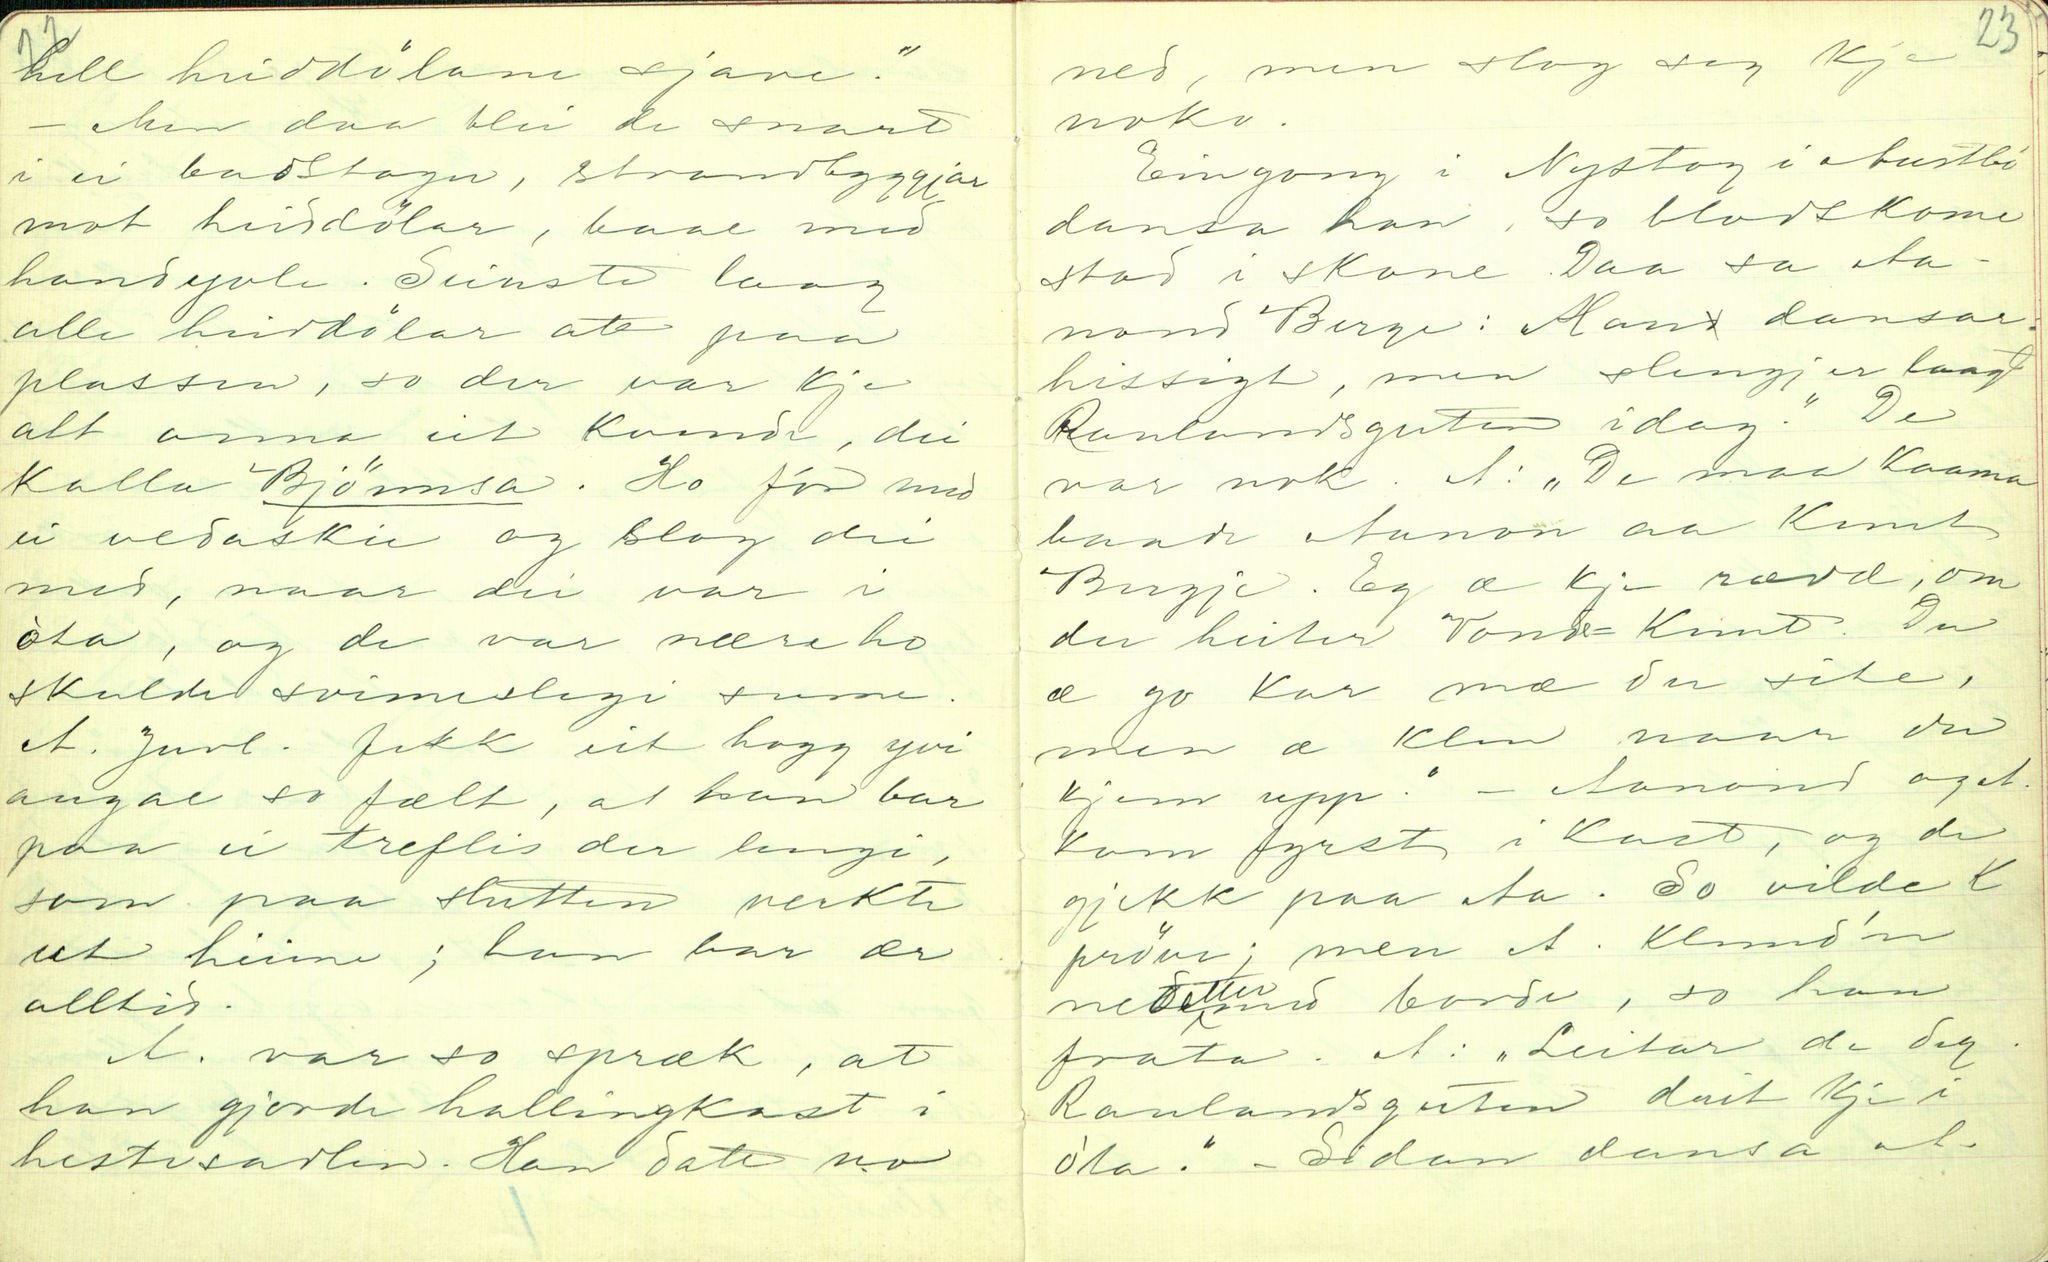 22
hell heiddölane sjave."
– Men daa blei de snart
i ei badstogu, strandbyggjar
mot heiddölar, baae med
handyvle. Seinste laag
alle heiddölar att paa
plassen, so der var kje
alt anna eit kvende, dei
kalla Bjönnsa. Ho for med
ei vedaskie og slog dei
med, naar dei var i
òta, og de var nære ho
skulde svimeslegi sume.
A. Juvl. fekk eit hogg yvi
augae so fælt, at han bar
paa ei treflis der lengi,
som paa slutten verkte
ut heime; han bar ær
alltid.
A. var so spræk, at
han gjorde hallingkast i
hestesadlen. Han datt no
23
ned, men slog seg kje
noko.
Eingong i Nystog i Austbö
dansa han, so blodskome
stod i skone. Daa sa Aa-
nond Berge: Mans dansar
hissigt, men slengjer laagt
Raulandsguten idag." De
var nok. A: „De maa koama
baade Aanon aa Knut
Bergje. Eg æ kje rædd, om
du heiter Vonde-Knut. Du
æ go kar mæ du site,
men æ klen naar du
kjem upp." – Aanond og A.
kom fyrst i kast, og de
gjekk paa Aa. So vilde K
pröve; men A. klemd'n
nedetter med borde, so han
frata. A: „Leitar de deg
Raulandsguten dreit kje i
òta." – Sidan dansa A.